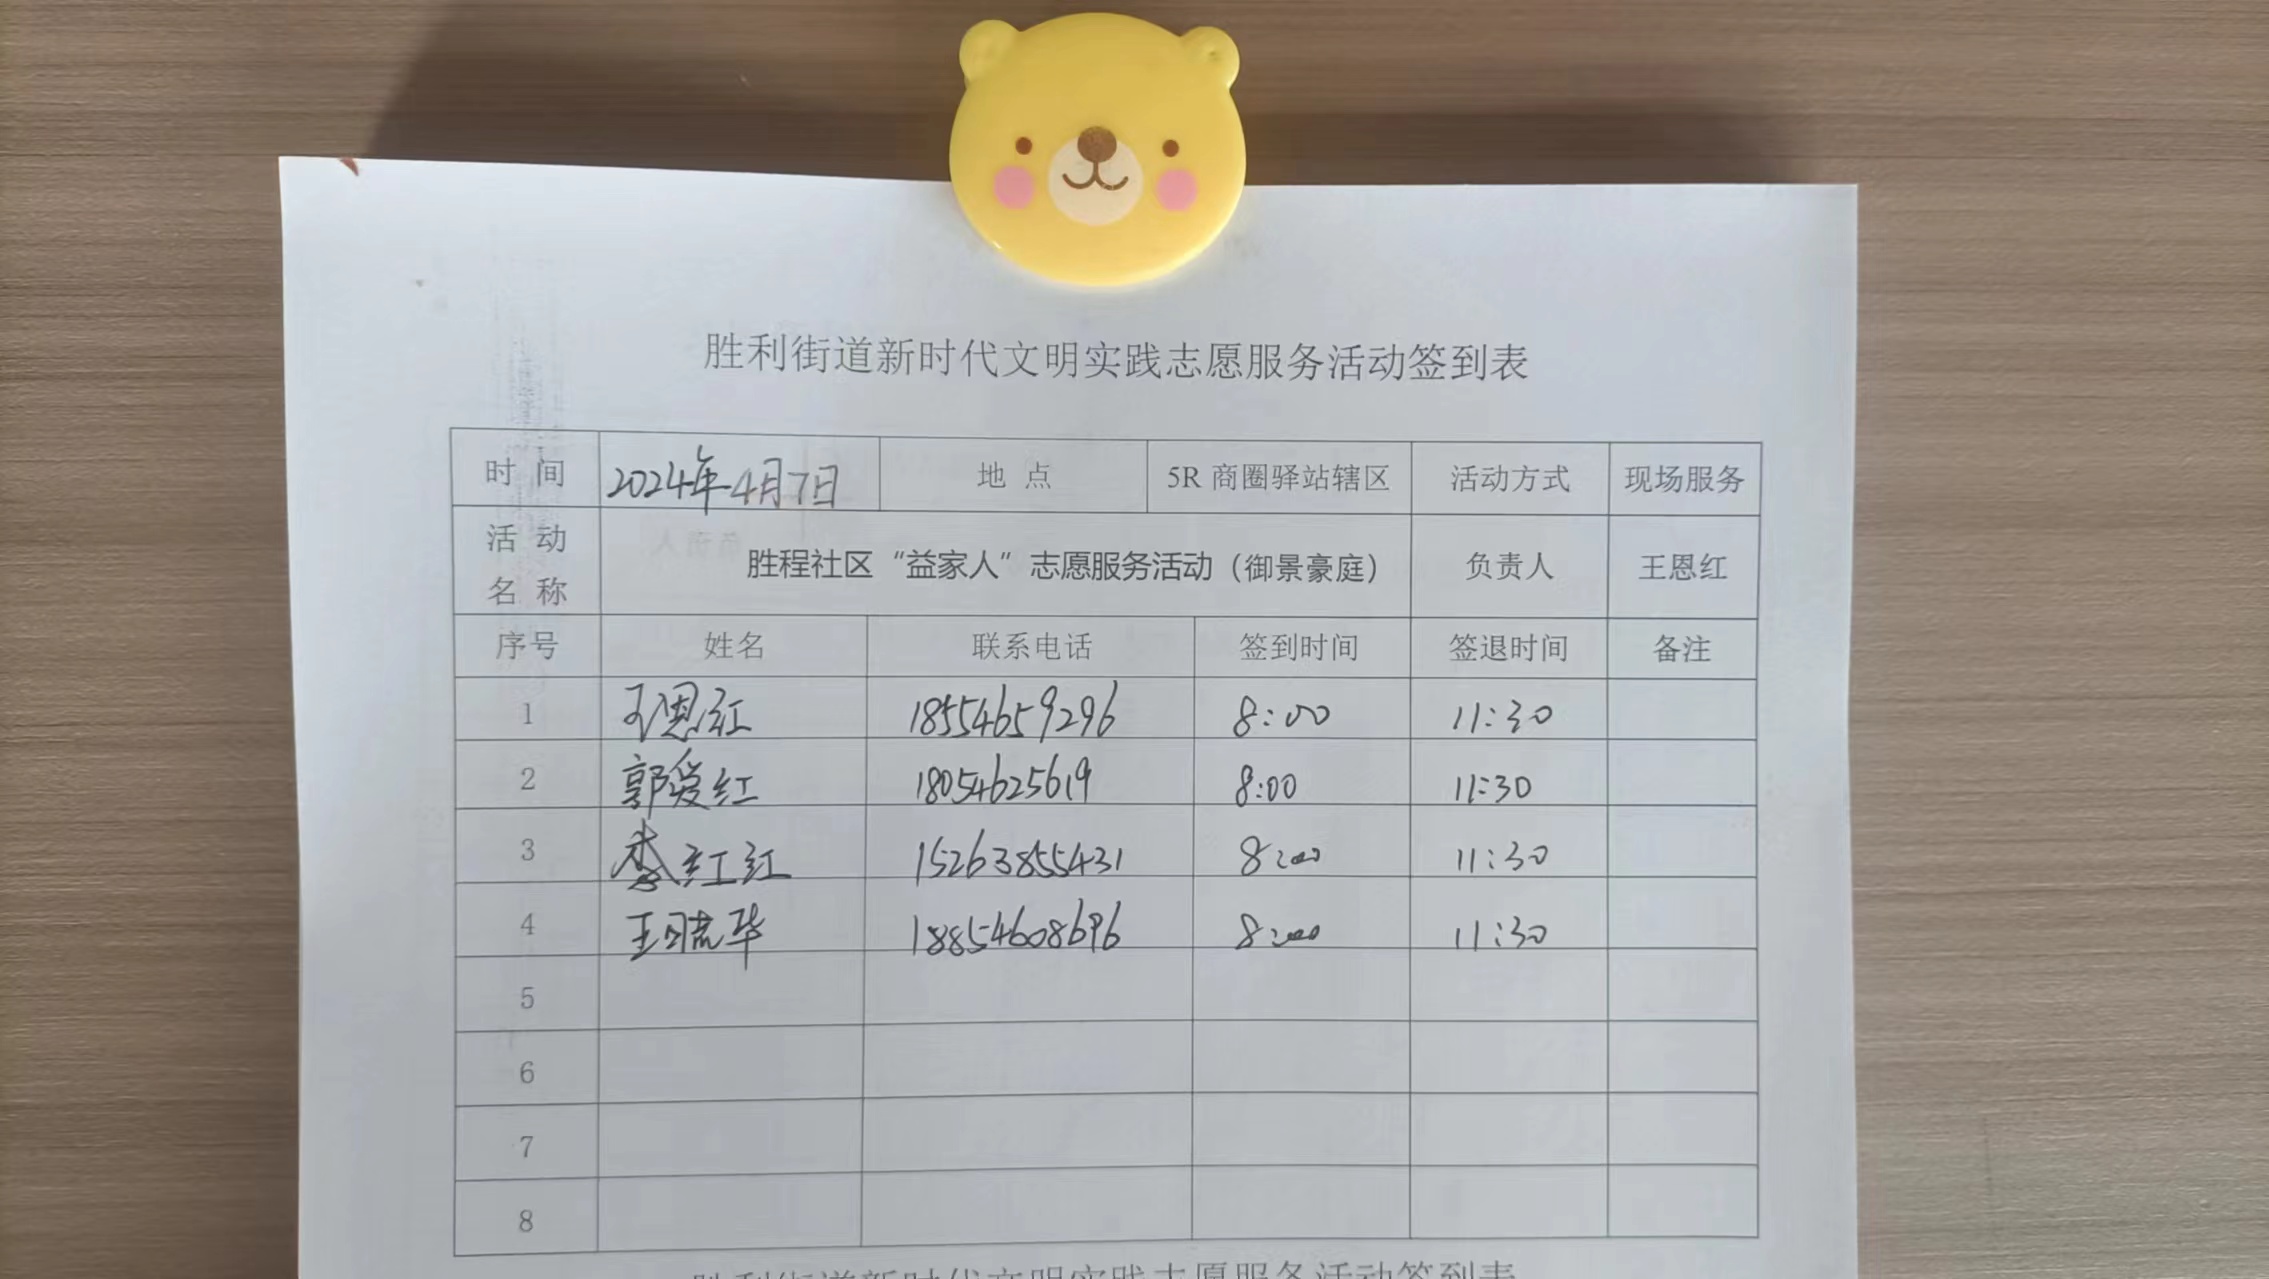 胜利街道新时代文明实践志愿服务活动签到表
时 间 2024年4月7日 地 点 5R 商圈驿站辖区 活动方式 现场服务
活 动 名 称 胜程社区“益家人”志愿服务活动（御景豪庭） 负责人 王恩红
序号 姓名 联系电话 签到时间 签退时间 备注
1 王恩红 18554659296 8:00 11:30
2 郭爱红 18054625619 8:00 11:30
3 红红 15263855431 8:00 11:30
4 王晓华 18854608696 8:00 11:30
5
6
7
8
胜利街道新时代文明实践志愿服务活动签到表